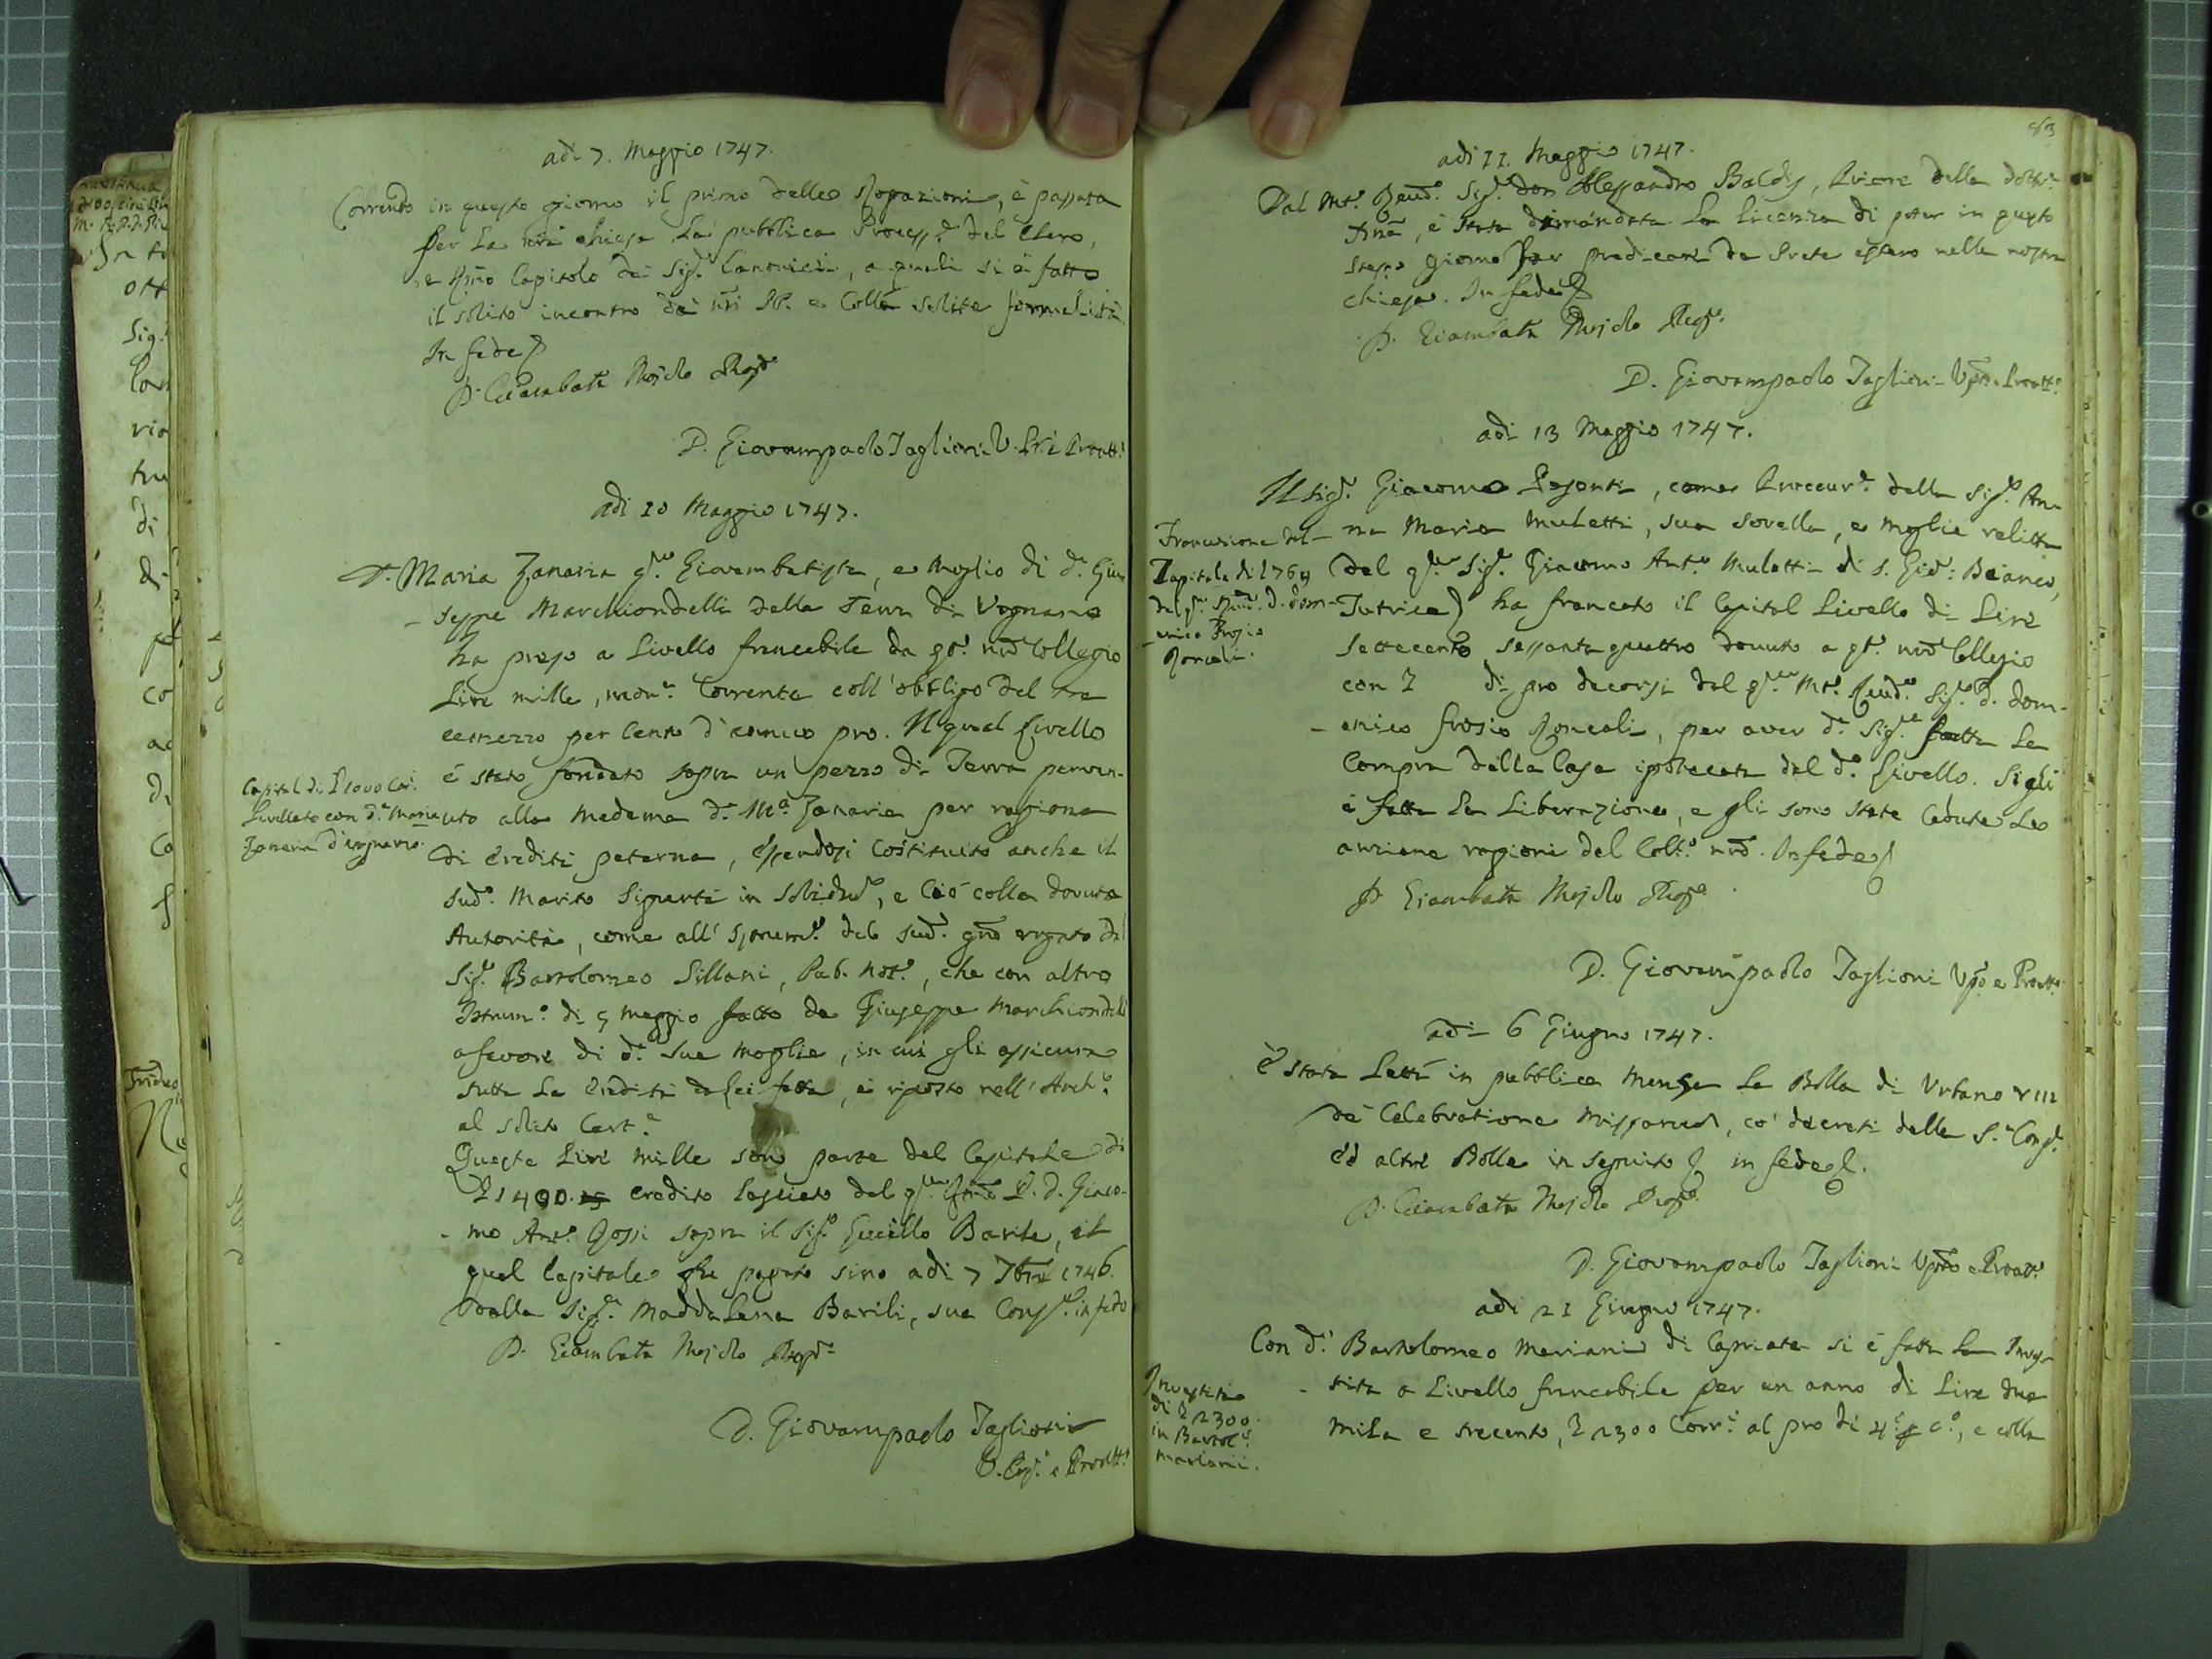 adi 7. Maggio 1747.
Correndo in questo giorno il primo delle Rogazioni, è passata
per la nrã chiesa la pubblica Process.e del Clero,
e Rmõ Capitolo de Sig.ri Canonici, a quali si è fatto
il solito incontro da nri PP. e Collã solite formalità.
In fede
D. Giambatta Mojolo
D. Giovampaolo Taglioni V. Pri Proatt.
adi 10 Maggio 1747.
D.a Maria Zanaria q.m Giovambatista, e Moglie di d.o Giu-
seppe Marchiondelli della Terra di Vognano
ha preso a Livello francabile da q.to nrõ Collegio
Lire mille, mon.a Corrente coll' obbligo del tre
e mezzo per Cento d' annuo pro. Il qual Livello
è stato fondato sopra un pezzo di Terra perven-
uto alla medema d.a M.a Zanaria per ragione
di Eredità paterna, essendosi Costituito anche il
sud.o Marito Sigurtà in Solidũ, e Ciò colla dovuta
Autorità, come all' Istrum.o del sud.o gno rogato dal
Sig.r Bartolomeo Sillani, Pub. Not.o, che con altro
Istrum.o di 5 Maggio fatto da Giuseppe Marchiondelli
a favore di d.a sua Moglie, in cui gli assicura
tutta la Eredità da lei fatta, è riposto nell' Arch.o
al solito Cart.e
Capital di L 1000 Cor.
Livellato con d.a Maria
Zanaria d'Ognano.
Queste Lire mille sono parte del Capitale di
L 1400. credito lasciato dal q.m Rmõ P. D. Giaco-
mo Ant.o Rossi sopra il Sig.r Gucillo Barile, il
qual Capitale fu pagato sino adi 7 7bre 1746.
dalla Sig.a Maddalena Barili, sua Cons.te in fede
D. Giambatta Mojolo
D. Giovampaolo Taglioni
V. Prp.o e Proatt.
83
adi 11. Maggio 1747.
Dal Mt.o Revd.o Sig.r Don Alessandro Baldis, Priore della dottr.a
Xnã, è stata dimandata la licenza di poter in questo
stesso giorno far predicare da Prete estero nella nostra
chiesa. In fede
D. Giambatta Mojolo
D. Giovampaolo Taglioni Vpõ e Proatt.o
adi 13 Maggio 1747.
Il Sig.r Giacomo Pesenti, come Procur.e della Sig.a An-
na Maria Muletti, sua sorella, e moglie relitta
del q.m Sig.r Giacomo Ant.o Muletti di S. Gio: Bianco,
Tutrice) ha francato il Capital Livello di Lire
Settecento sessanta quattro dovuto a q.to nrõ Collegio
con L di pro decorsi dal q.m Mt.o Revd.o Sig.r D. Dom-
enico Frosio Roncali, per aver d.a Sig.a fatta la
Compra della Casa ipotecata dal d.o Livello. Si gli
è fatta la Liberazione, e gli sono state Cedute le
anziane ragioni del Coll.o nrõ. In fede
D. Giambatta Mojolo
Francazione del
Capitale di L 764
del q.m Revd. D. Dom-
enico Frosio
Roncali.
D. Giovampaolo Taglioni Vpõ e Proatt.o
adi 6 Giugno 1747.
È stata Letta in pubblica Mensa la Bolla di Urbano VIII
de Celebratione Missarum, co' decreti della S. Cong.e
ed altre Bolle in seguito in fede.
D. Giambatta Mojolo
D. Giovampaolo Taglioni Vpõ e Proatt.o
adi 21 Giugno 1747.
Con d.o Bartolomeo Mariani di Capriate si è fatta la Inves-
tita a Livello francabile per un anno di Lire due
mila e trecento, L 2300 Corr.i al pro di 4 p C.o, e colla
Investita
di L 2300.
in Bartol.o
Mariani.